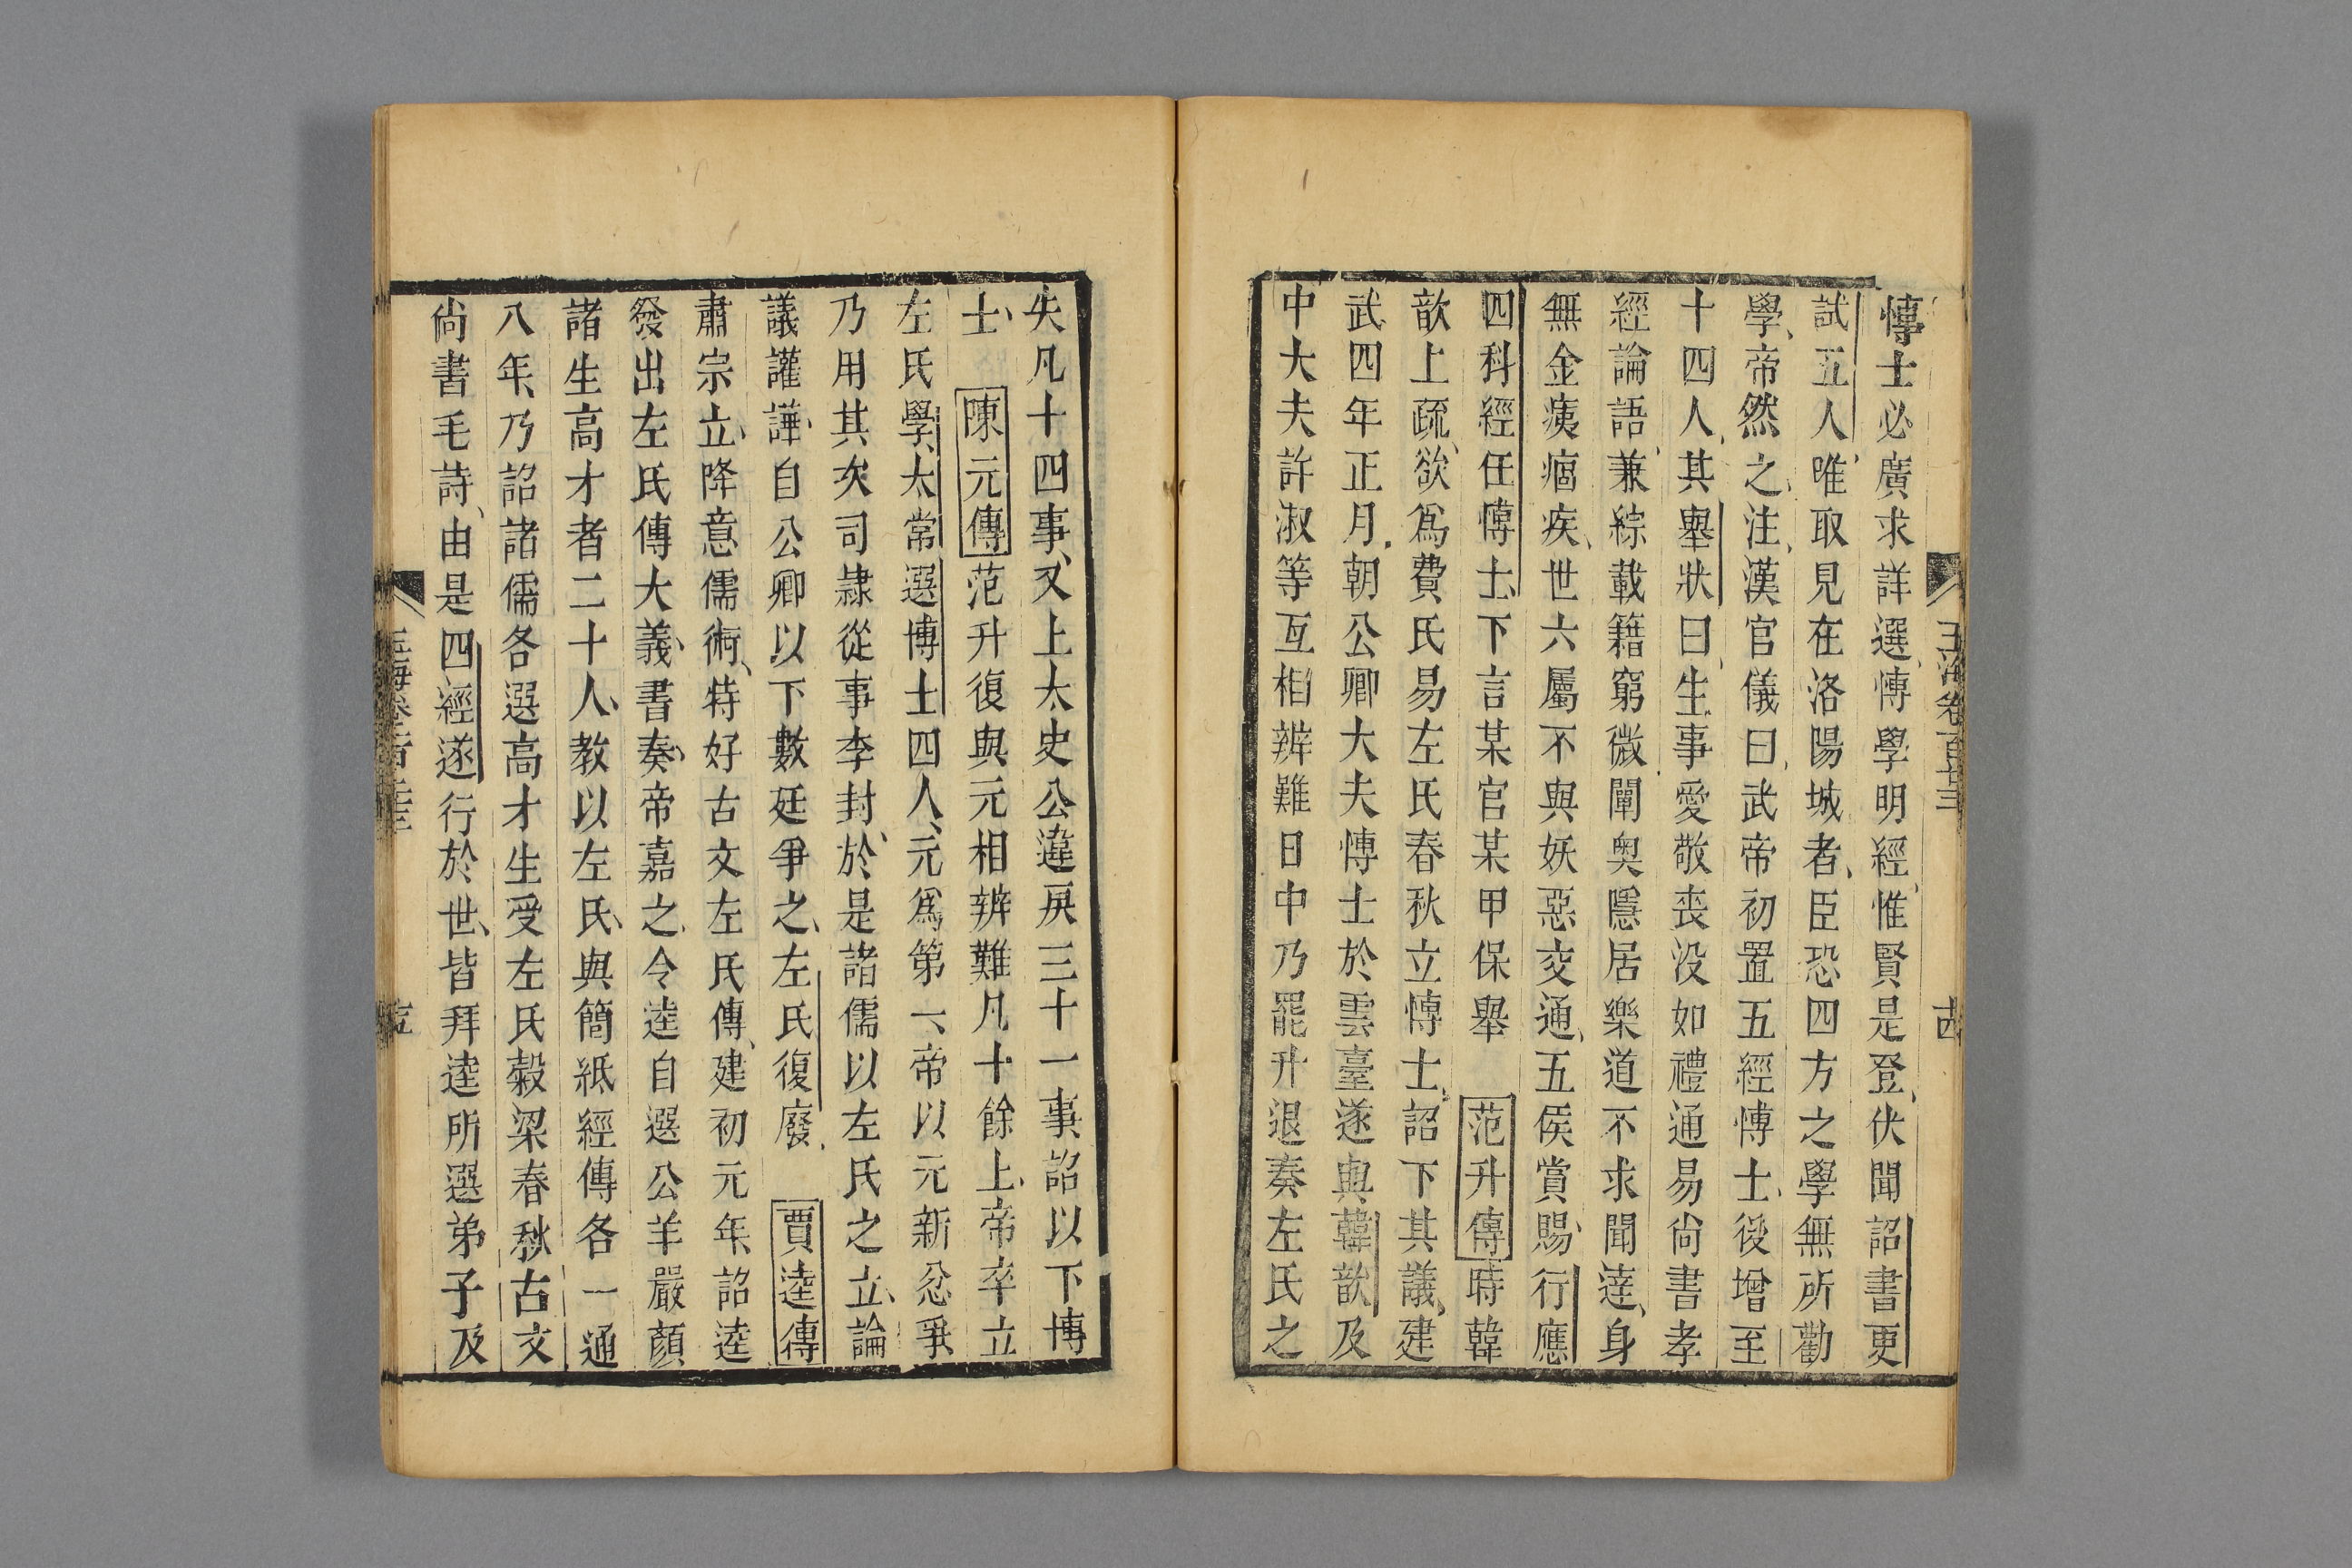 慱士必廣求詳選慱學明經惟賢是登伏聞詔書更
試五人唯取見在洛陽城者臣恐四方之學無所勸
學帝然之注漢官儀曰武帝初置五經慱士後增至
十四人其舉狀曰生事愛敬喪没如禮通易尚書孝
經論語兼綜載籍窮微闡奥隱居樂道不求聞達身
無金痍痼疾世六屬不與妖惡交通五侯賞賜行應
四科經任慱士下言某官某甲保舉 范升傳時韓
歆上疏欲爲費氏易左氏春秋立慱士詔下其議建
武四年正月朝公卿大夫慱士於雲臺遂與韓歆及
中大夫許淑等互相辨難日中乃罷升退奏左氏之
失凡十四事又上太史公違戾三十一事詔以下博
士 陳元傳范升復與元相辨難凡十餘上帝卒立
左氏學太常選博士四人元爲第一帝以元新忿爭
乃用其次司隷從事李封於是諸儒以左氏之立論
議讙譁自公卿以下數廷爭之左氏復廢 賈逵傳
肅宗立降意儒術特好古文左氏傳建初元年詔逵
發出左氏傳大義書奏帝嘉之令逵自選公羊嚴顏
諸生高才者二十人教以左氏與簡紙經傳各一通
八年乃詔諸儒各選高才生受左氏穀梁春秋古文
尚書毛詩由是四經遂行於世皆拜逵所選弟子及
玉海卷一百廿三
十四